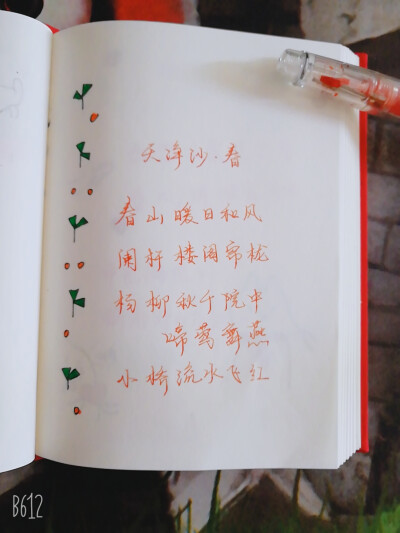 天净沙·春
春山暖日和风
阑杆楼阁帘栊
杨柳秋千院中
啼莺舞燕
小桥流水飞红
B612